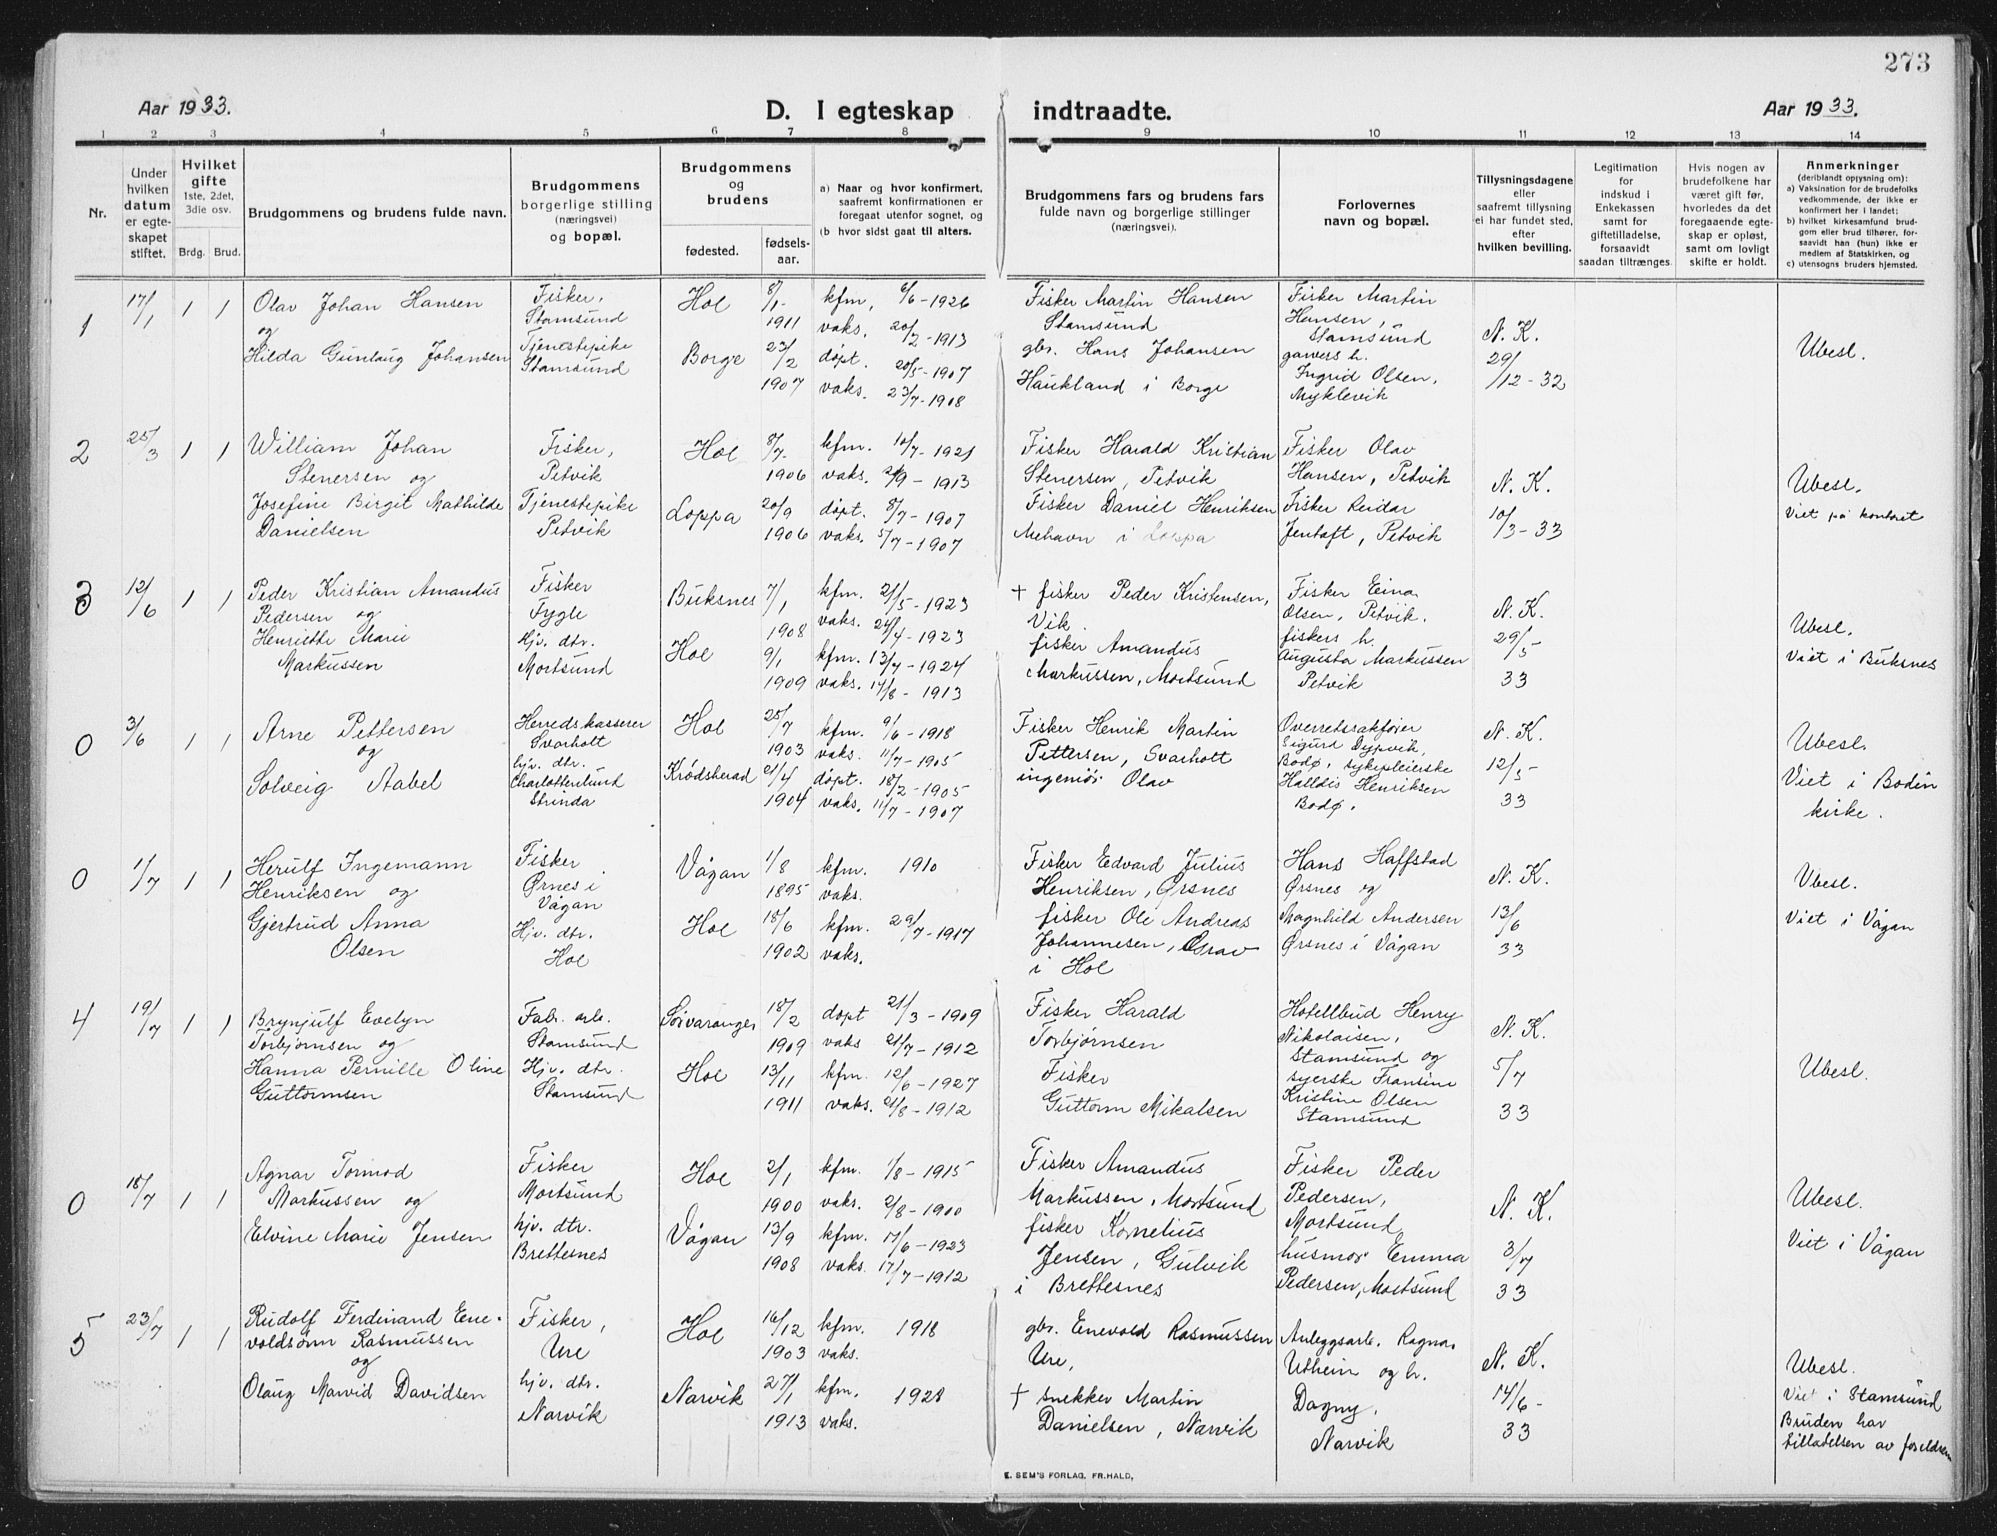 273
Aar 1933.
D. I egteskap indtraadte.
Aar 1933.
1 2 3 4 5 6 7 8 9 10 11 12 13 14
Nr.
Under hvilken datum er egteskapet stiftet.
Hvilket gifte 1ste, 2det, 3die osv.
Brdg. Brud.
Brudgommens og brudens fulde navn.
Brudgommens borgerlige stilling (næringsvei) og bopæl.
Brudgommens og brudens
fødested. fødselsaar.
a) Naar og hvor konfirmert, saafremt konfirmationen er foregaat utenfor sognet, og
(b hvor sidst gaat til alters.
Brudgommens fars og brudens fars fulde navn og borgerlige stillinger (næringsvei).
Forlovernes navn og bopæl.
Tillysningsdagene eller saafremt tillysning ei har fundet sted, efter hvilken bevilling.
Legitimation for indskud i Enkekassen samt for giftetilladelse, forsaavidt saadan tiltrænges.
Hvis nogen av brudefolkene har været gift før, hvorledes da det foregaaende egteskap er opløst, samt om lovligt skifte er holdt.
Anmerkninger (deriblandt opjysning om):
a) Vaksination for de brudefolks vedkommende, der ikke er konfirmert her i landet:
b) hvilket kirkesamfund brudgom eller brud tilhører, forsaavidt han (hun) ikke er medlem af Statskirken, og
c) utensogns bruders hjemsted.
1
17/1
1 1
Olav Johan Hansen
og
Hilda Gunlaug Johansen
Fisker,
Stamsund
Tjenestepike
Stamsund
Hol
Borge
8/1-
1911
23/2
1907
kfm, 6/6-1926
vaks. 20/2-1913
døpt. 20/5-1907
vaks. 23/7-1908
Fisker Martin Hansen
Stamsund
gbr. Hans Johansen
Haukland i Borge
Fisker Martin
Hansen,
Stamsund
h.
Ingrid Olsen,
Myklevik
N. K.
29/12-32
Ubesl.
2
25/3
1 1
William Johan
Stenersen og
Josefine Birgit Mathilde
Danielsen
Fisker,
Petvik
Tjenestepike
Petvik
Hol
Loppa
8/7-
1906
20/9
1906
kfm. 10/7-1921
vaks. /9-1913
døpt. 8/7-1907
vaks. 5/7-1907
Fisker Harald Kristian
Stenersen, Petvik
Fisker Daniel Henriksen
Mehavn i Loppa
Fisker Olav
Hansen, Petvik
Fisker Reidar
Jentoft, Petvik
N. K.
10/3-33
Ubesl.
Viet på kontoret
3
12/6
1 1
Peder Kristian Amandus
Pedersen og
Henriette Marie
Markussen
Fisker
Fygle
Hjv. dtr.
Mortsund
Buksnes
Hol
7/1
1908
9/1
1909
kfm. 21/5-1923
vaks. 24/4-1923
kfm. 13/7-1924
vaks. 14/8-1913
† fisker Peder Kristensen,
Vik
fisker Amandus
Markussen, Mortsund
Fisker Einar
Olsen, Petvik.
fiskers h.
Augusta Markussen
Petvik
N. K.
29/5
33
Ubesl.
Viet i Buksnes
0
3/6
1 1
Arne Pettersen
og
Solveig Aabel
Herredskasserer
Svarholt
hjv. dtr.
Charlottenlund
Strinda
Hol
Krødsherad
25/7
1903
21/4
1904
kfm. 9/6-1918
vaks. 11/7-1905
døpt. 18/2-1905
vaks. 11/7-1907
Fisker Henrik Martin
Pettersen, Svarholt
ingeniør Olav
Overretsrakfører
Sigurd Dypvik,
Bodø, sykepleierske
Halldis Henriksen
Bodø.
N. K.
12/5-
33
Ubesl.
Viet i Bodin
kirke.
0
1/7
1 1
Herulf Ingemann
Henriksen og
Gjertrud Anna
Olsen
Fisker
Ørnes i
Vågan
Hjv. dtr.
Hol
Vågan
Hol
1/8
1895
18/6
1902
kfm. 1910
vaks.
kfm. 29/7-1917
vaks.
Fisker Edvard Julius
Henriksen, Ørsnes
fisker Ole Andreas
Johannesen,
i Hol
Hans Haffstad
Ørsnes og
Magnhild Andersen
Ørsnes i Vågan
N. K.
13/6
33
Ubesl.
Viet i Vågan
4
19/7
1 1
Brynjulf Evelyn
Torbjørnsen og
Hanna Pernille Oline
Guttormsen
Fabr. arb.
Stamsund
Hjv. dtr.
Stamsund
Sørvaranger
Hol
18/2
1909
13/11
1911
døpt 21/3-1909
vaks 21/7-1912
kfm. 12/6-1927
vaks. 2/8-1912
Fisker Harald
Torbjørnsen
Fisker
Guttorm Mikalsen
Hotellbud Henry
Nikolaisen,
Stamsund og
syerske Fransine
Kristine Olsen
Stamsund
N. K.
5/7
33
Ubesl.
0
18/7
1 1
Agnar Tormod
Markussen og
Elvine Marie Jensen
Fisker
Mortsund
hjv. dtr.
Brettesnes
Hol
Vågan
2/1
1900
13/9
1908
kfm. 1/8-1915
vaks. 2/8-1910
kfm. 17/6-1923
vaks. 17/7-1912
Fisker Amandus
Markussen, Mortsund
fisker Kornelius
Jensen, Gulvik
i Brettesnes
Fisker Peder
Pedersen,
Mortsund
husmor Emma
Pedersen, Mortsund
N. K.
3/7
33
Ubesl.
Viet i Vågan
5
23/7
1 1
Rudolf Ferdinand Ene-
voldsønn Rasmussen
og
Olaug Marvid Davidsen
Fisker,
Ure
hjv. dtr.
Narvik
Hol
Narvik
16/12
1903
27/1
1913
kfm. 1918
vaks.
kfm. 1928
vaks.
gbr. Enevold Rasmussen
Ure,
† snekker Martin
Danielsen, Narvik
Anleggsarb. Ragnar
Utheim og h.
Dagny,
Narvik
N. K.
14/6-
33
Ubesl.
Viet i Stamsund
Bruden har
tillatelsen av foreldrene
E. SEM'S FORLAG, FR.HALD,